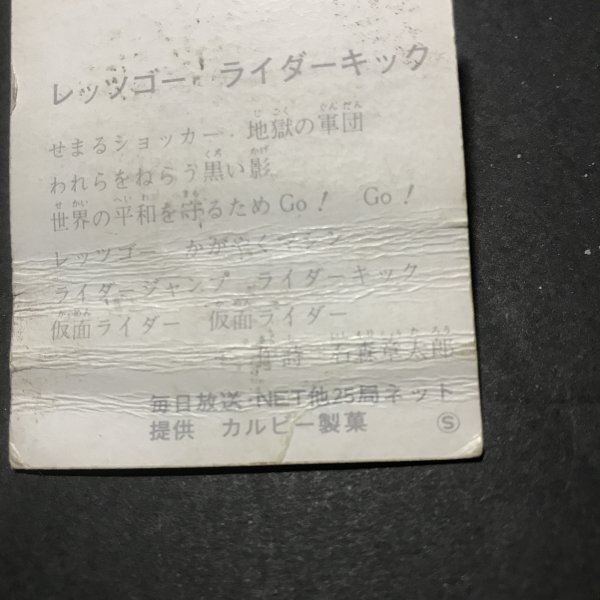 レッツゴー ライダーキック
せまるショッカー 地獄の軍団
われらをねらう黒い影
世界の平和を守るため Go! Go!
レッツゴー かがやくマシン
ライダージャンプ ライダーキック
仮面ライダー 仮面ライダー
作詩 石森章太郎
毎日放送・NET他25局ネット
提供 カルビー製菓 Ⓢ